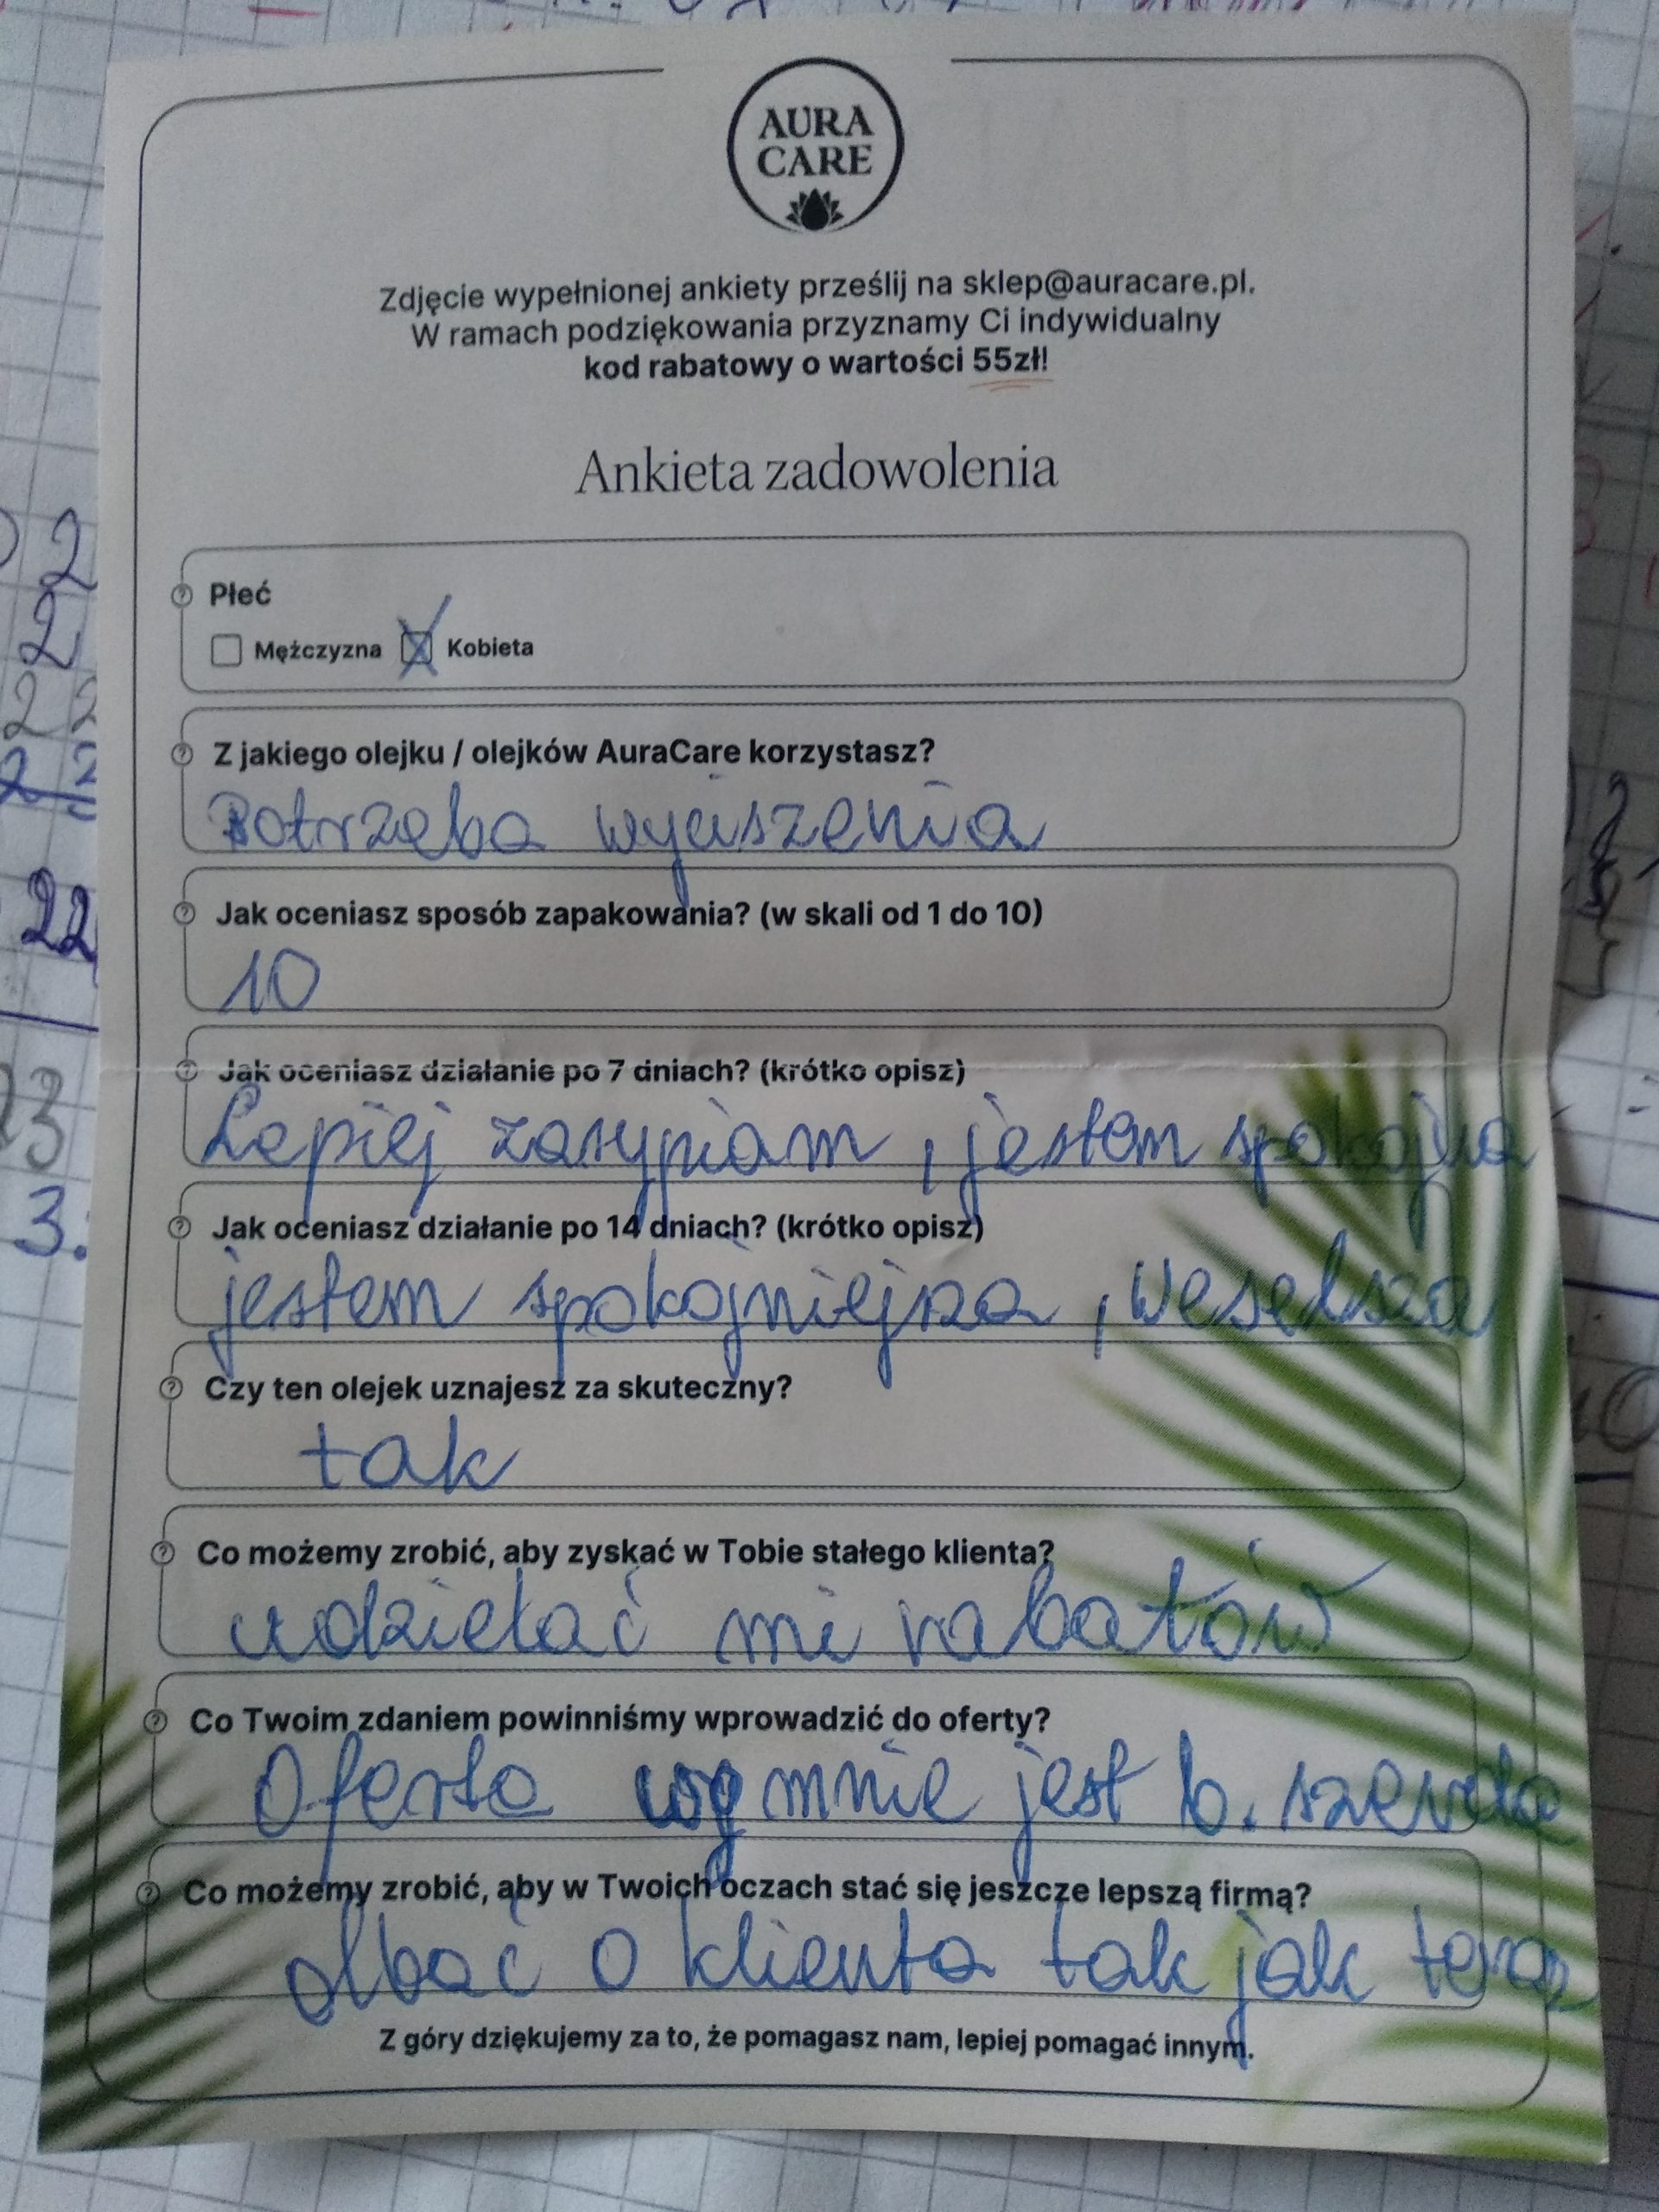 AURA
CARE
Zdjęcie wypełnionej ankiety prześlij na sklep@auracare.pl.
W ramach podziękowania przyznamy Ci indywidualny
kod rabatowy o wartości 55zł!
Ankieta zadowolenia
Płeć
Mężczyzna Kobieta
Z jakiego olejku / olejków AuraCare korzystasz?
Potrzeba wyciszenia
Jak oceniasz sposób zapakowania? (w skali od 1 do 10)
10
Jak oceniasz działanie po 7 dniach? (krótko opisz)
Lepiej zasypiam, jestem spokojna
Jak oceniasz działanie po 14 dniach? (krótko opisz)
jestem spokojniejsza, weselsza
Czy ten olejek uznajesz za skuteczny?
tak
Co możemy zrobić, aby zyskać w Tobie stałego klienta?
udzielać mi rabatów
Co Twoim zdaniem powinniśmy wprowadzić do oferty?
Oferta wg mnie jest b. szeroka
Co możemy zrobić, aby w Twoich oczach stać się jeszcze lepszą firmą?
dbać o klienta tak jak teraz
Z góry dziękujemy za to, że pomagasz nam, lepiej pomagać innym.
2
2
22
22
3.